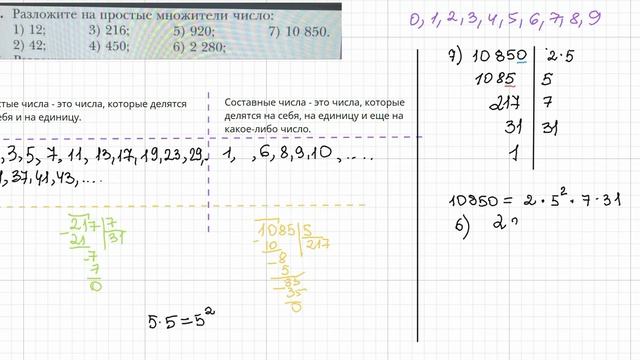 . Разложите на простые множители число:
1) 12; 3) 216; 5) 920; 7) 10 850.
2) 42; 4) 450; 6) 2 280;
0, 1, 2, 3, 4, 5, 6, 7, 8, 9
7) 10850 | 2·5
1085 | 5
217 | 7
31 | 31
1
10850 = 2 · 5² · 7 · 31
6) 2
стые числа - это числа, которые делятся
ебя и на единицу.
, 3, 5, 7, 11, 13, 17, 19, 23, 29,
, 37, 41, 43, ....
Составные числа - это числа, которые
делятся на себя, на единицу и еще на
какое-либо число.
1, , 6, 8, 9, 10, ....
217 | 7
- 21 | 31
- 7
7
0
1085 | 5
- 10 | 217
- 8
5
- 35
35
0
5·5=5²